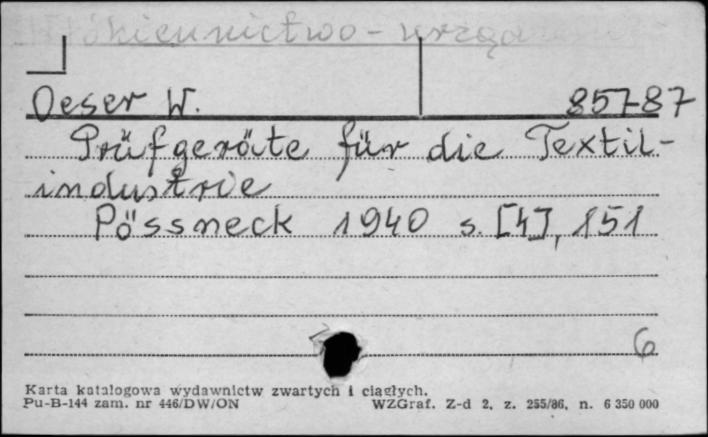 Włókiennictwo - urząd
Oeser W. 85787
Prüfgeräte für die Textil-
industrie
Pössneck 1940 s. [4], 151
6
Karta katalogowa wydawnictw zwartych i ciągłych.
Pu-B-144 zam. nr 446/DW/ON WZGraf. Z-d 2, z. 255/86, n. 6 350 000